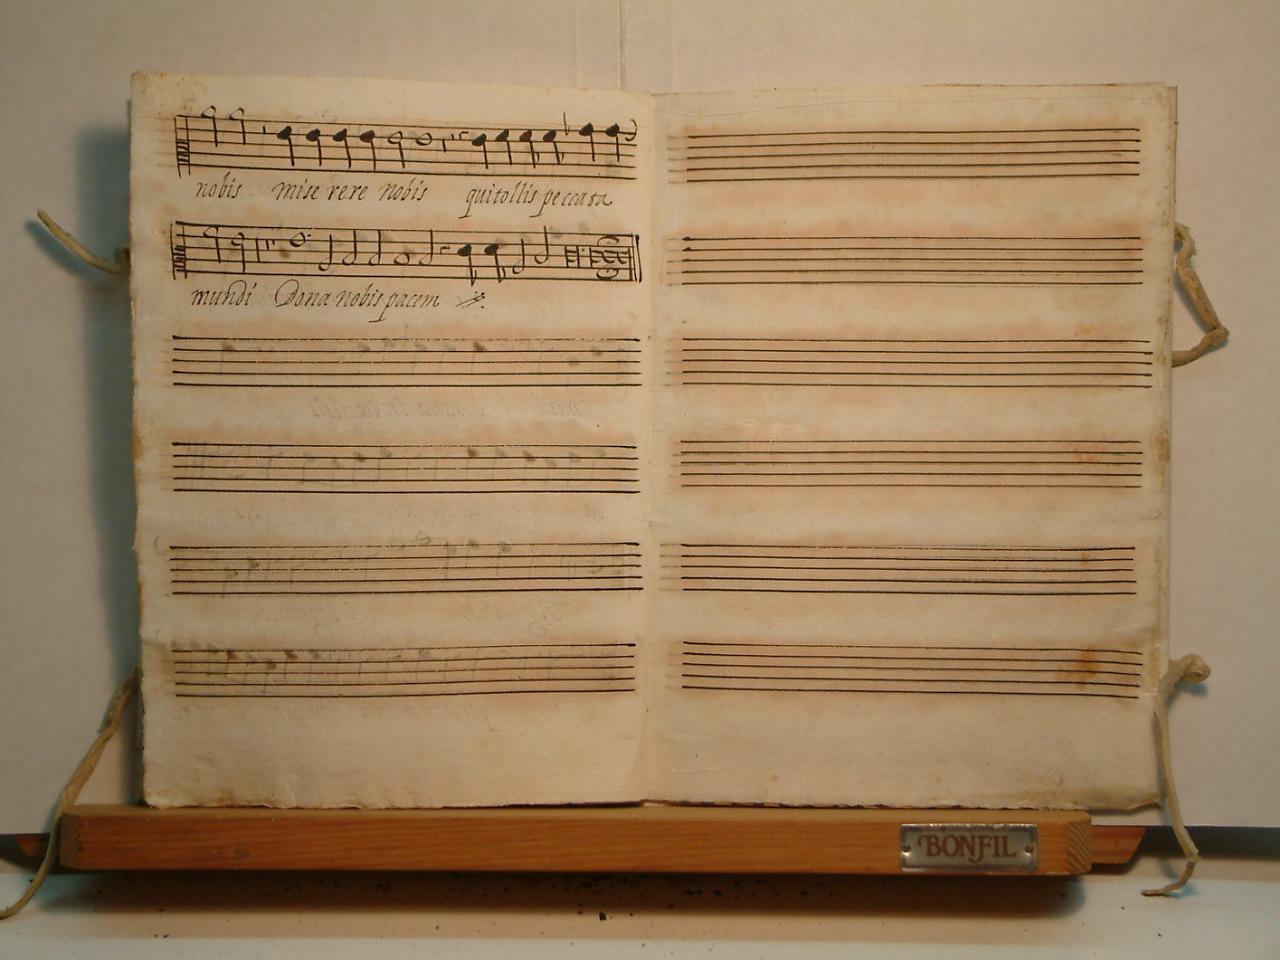 nobis mise rere nobis qui tollis peccata
mundi Dona nobis pacem
BONFIL